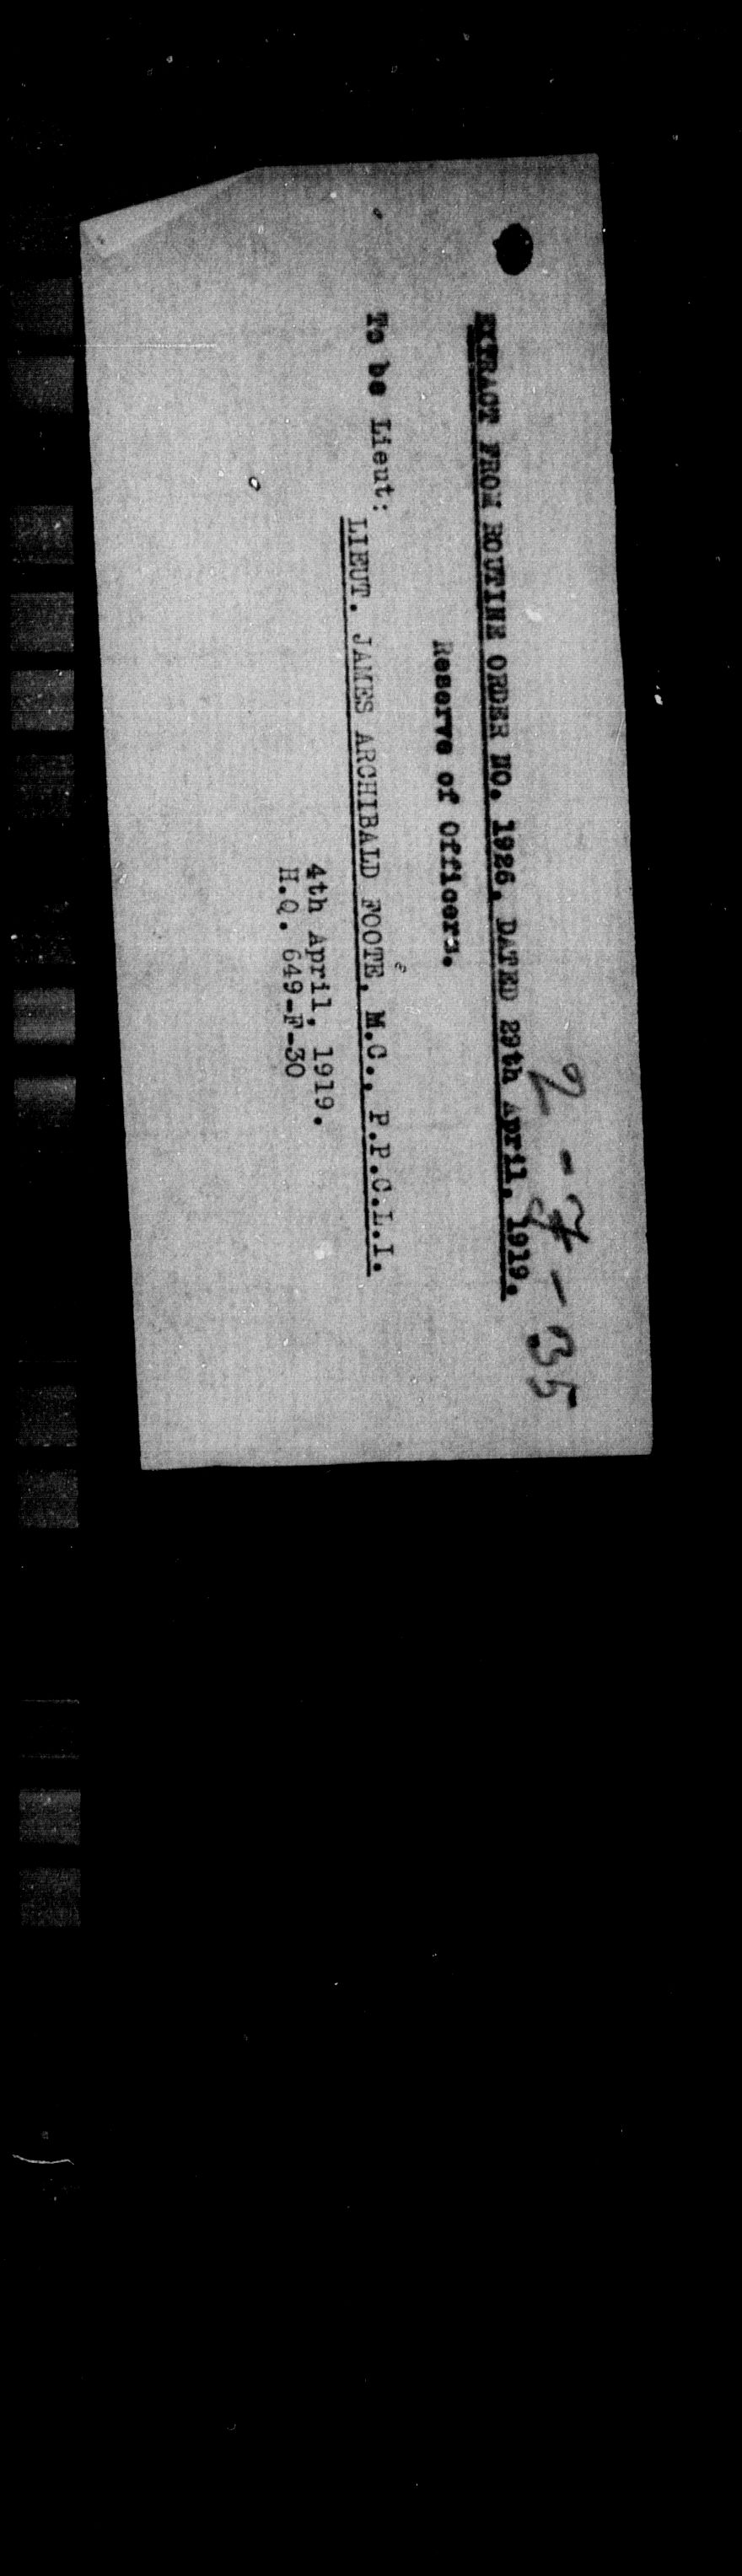 2-7-35
EXTRACT FROM ROUTINE ORDER NO. 1926, DATED 29th April, 1919.
Reserve of Officers.
To be Lieut:
LIEUT. JAMES ARCHIBALD FOOTE, M.C., P.P.C.L.I.
4th April, 1919.
H.Q. 649-F-30